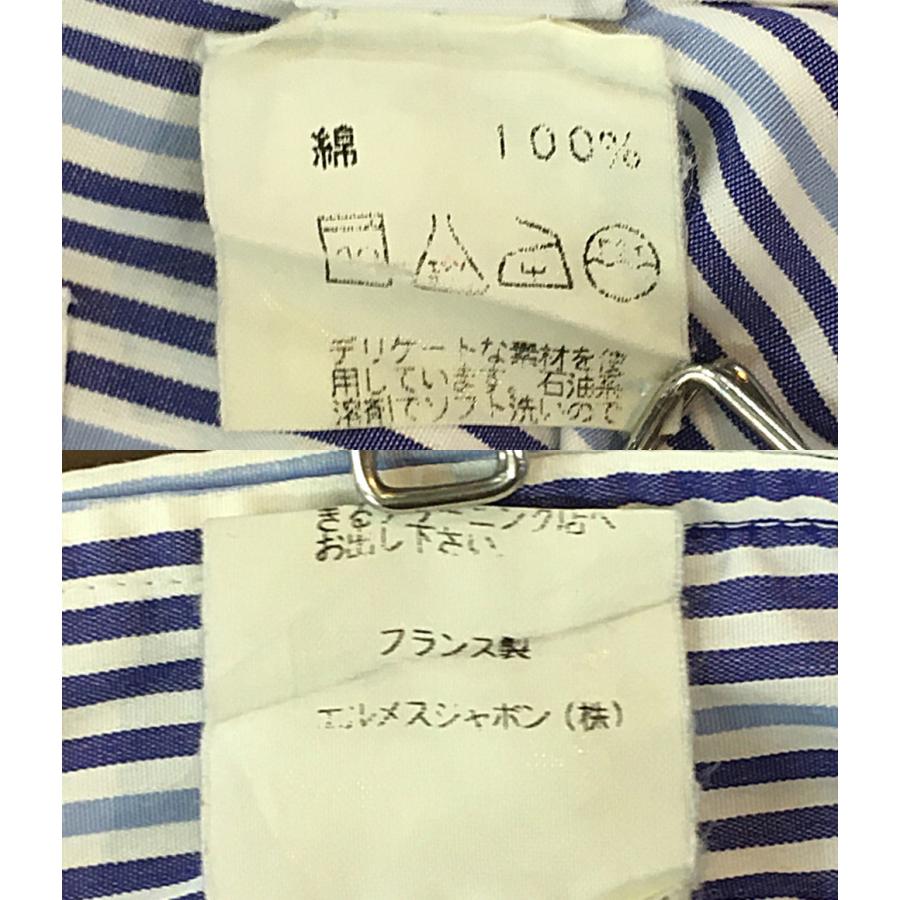 綿 100%
エンソ サラシ 4 ドライ セキユ系
デリケートな素材を使
用しています。石油系
溶剤でソフト洗いので
きるクリーニング店へ
お出し下さい。
フランス製
エルメスジャポン(株)